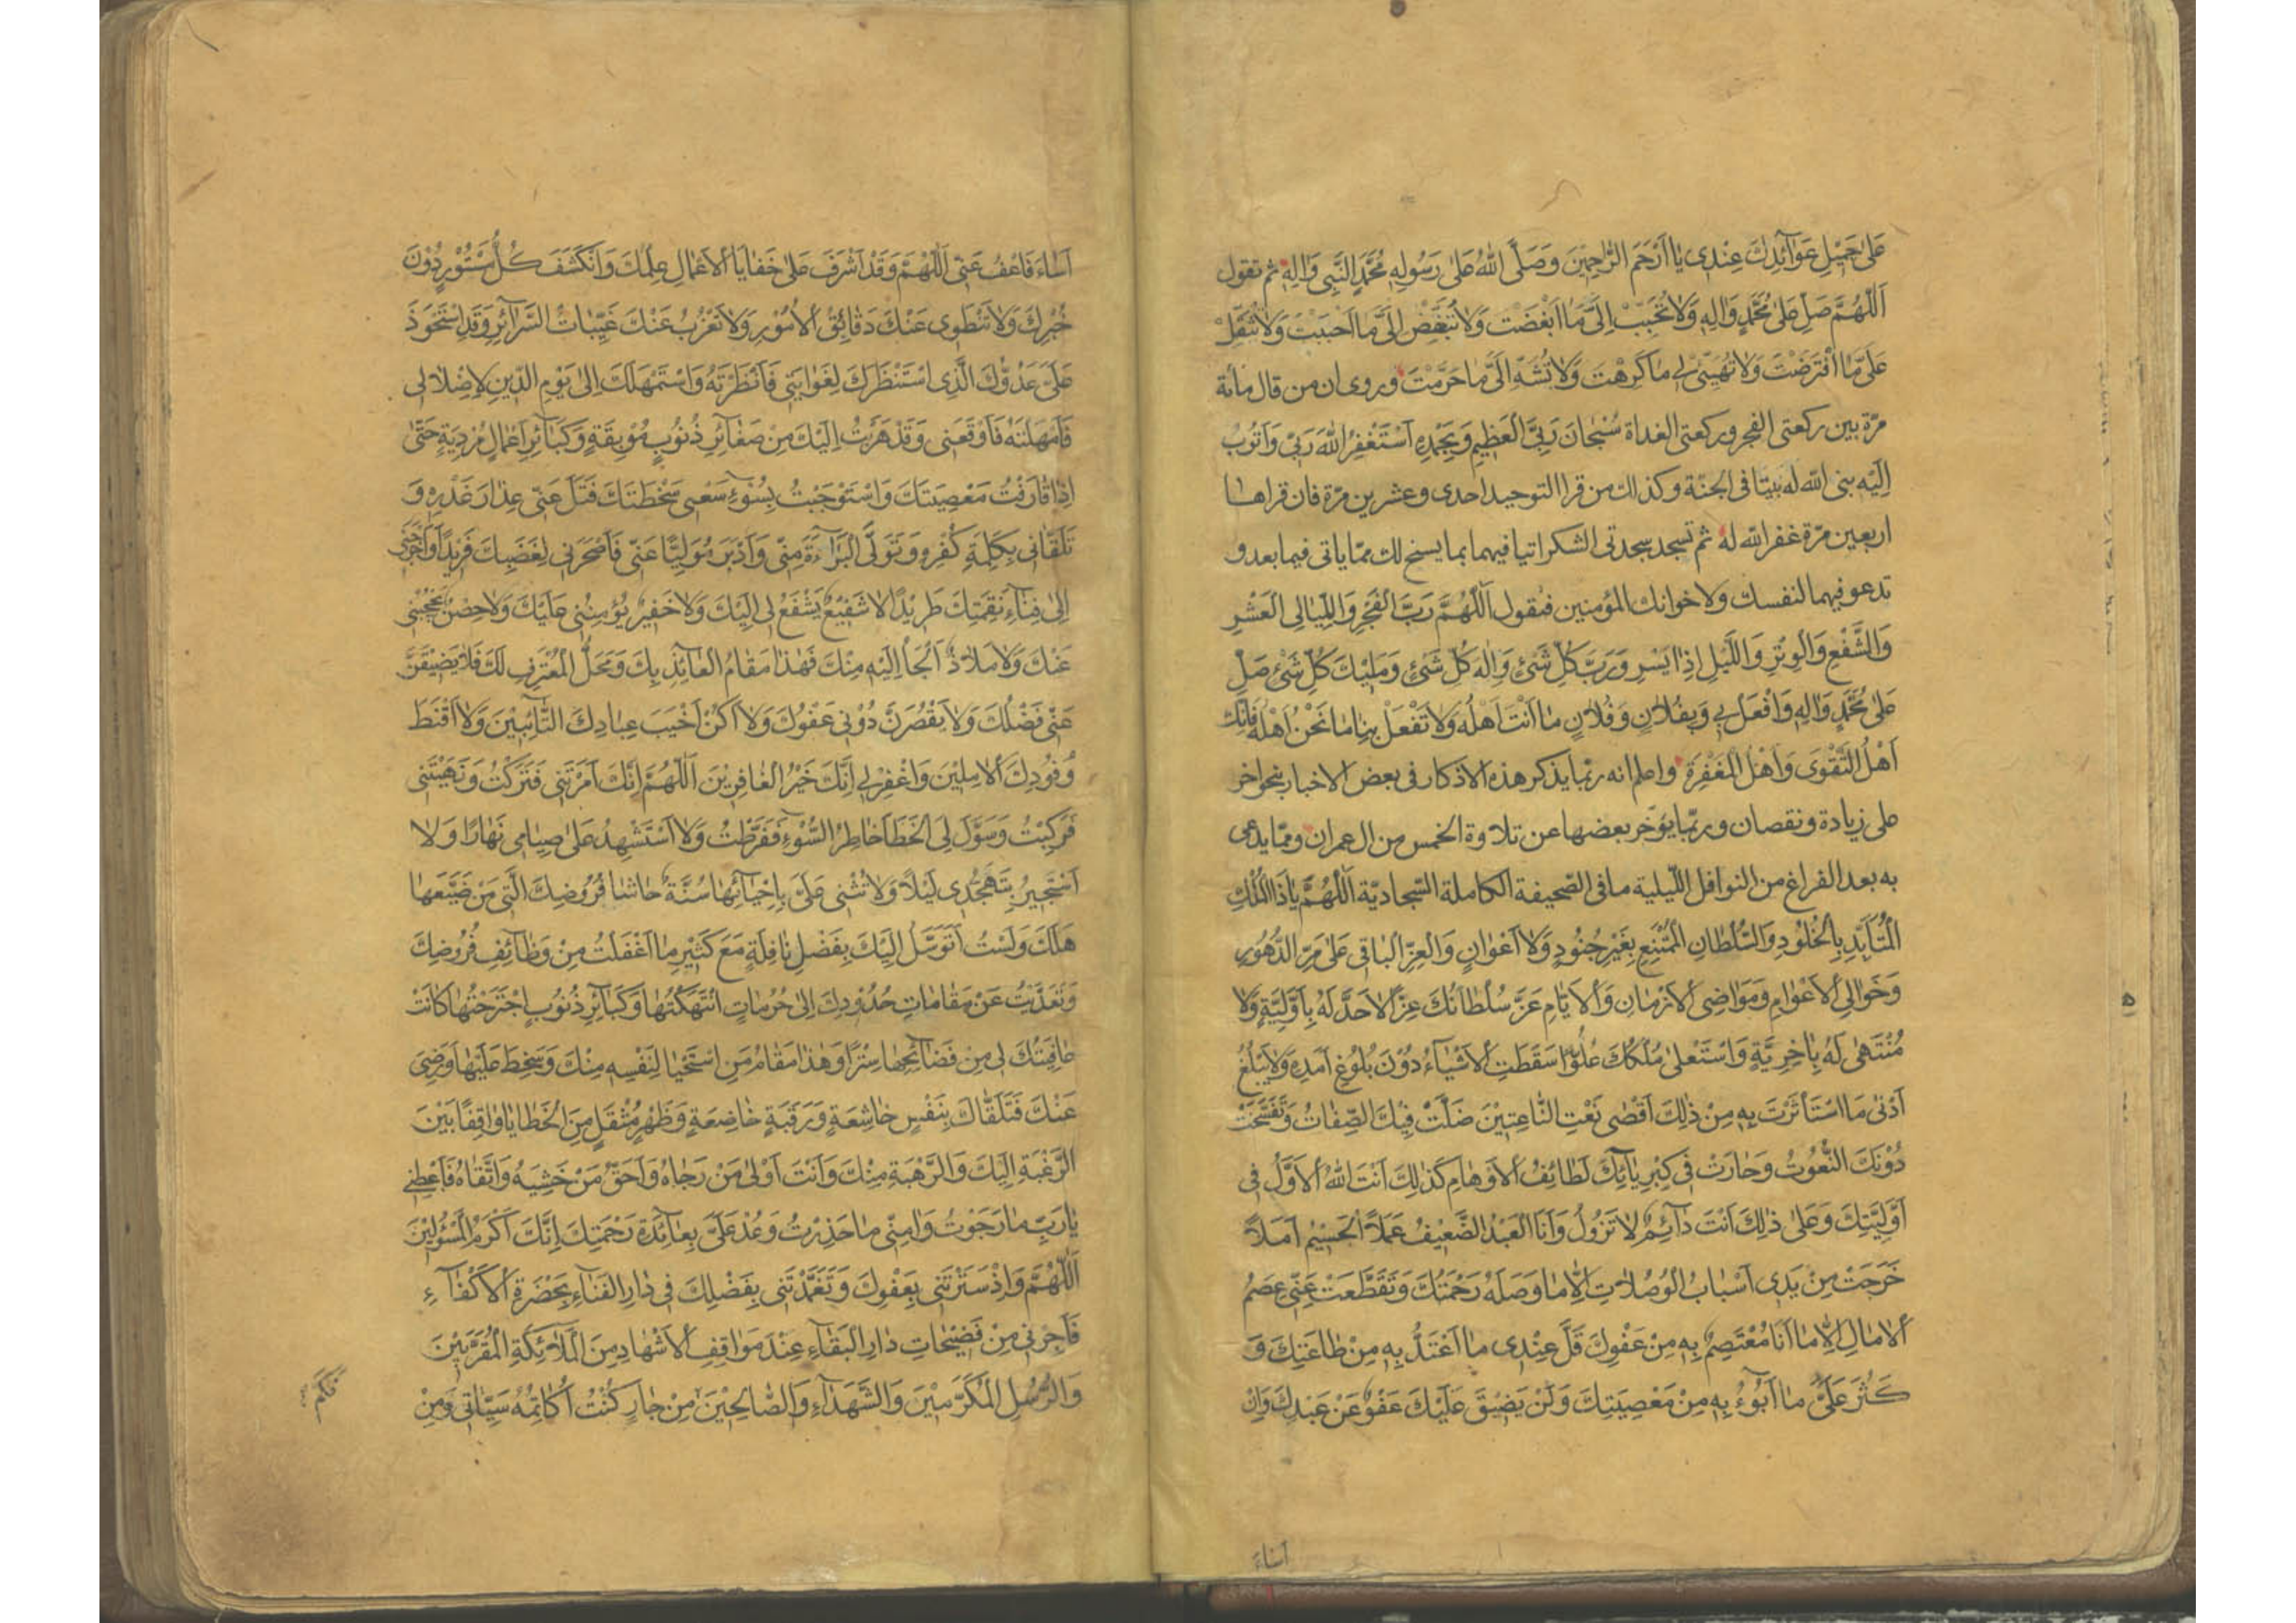 عَلىٰ جَمِيْلِ عَوَآئِدِكَ عِنْدِى يٰا اَرْحَمَ الرّٰاحِمِيْنَ وَصَلَّى اللهُ عَلىٰ رَسُولِهِ مُحَمَّدٍ النَّبِى وَاٰلِهِ ثم تقول
اَللّٰهُمَّ صَلِّ عَلىٰ مُحَمَّدٍ وَاٰلِهِ وَلاٰ تُحَبِّبْ اِلَىَّ مٰا اَبْغَضْتَ وَلاٰ تُبَغِّضْ اِلَىَّ مٰا اَحْبَبْتَ وَلاٰ تُثَقِّلْ
عَلَىَّ مٰا افْتَرَضْتَ وَلاٰ تُهَيِّئْ لِى مٰا كَرِهْتَ وَلاٰ تُشَهِّ اِلَىَّ مٰا حَرَّمْتَ وروى ان من قال مائة
مرّة بين ركعتى الفجر وركعتى الغداة سُبْحٰانَ رَبِّىَ الْعَظِيمِ وَبِحَمْدِهِ اَسْتَغْفِرُ اللهَ رَبِّىْ وَاَتُوبُ
اِلَيْهِ بنى الله له بيتا فى الجنّة وكذلك من قرا التوحيد احدى وعشرين مرّة فان قراها
اربعين مرّة غفر الله له ثم تسجد سجدتى الشكر اتيا فيهما بما يسنح لك ممّا ياتى فيما بعد و
تدعو فيهما لنفسك ولاخوانك المؤمنين فتقول اَللّٰهُمَّ رَبَّ الْفَجْرِ وَاللَّيٰالِى الْعَشْرِ
وَالشَّفْعِ وَالْوَتْرِ وَاللَّيْلِ اِذٰا يَسْرِ وَرَبَّ كُلِّ شَىْءٍ وَاِلٰهَ كُلِّ شَىْءٍ وَمَلِيْكَ كُلِّ شَىْءٍ صَلِّ
عَلىٰ مُحَمَّدٍ وَاٰلِهِ وَافْعَلْ بِى وَبِفُلاٰنٍ وَفُلاٰنٍ مٰا اَنْتَ اَهْلُهُ وَلاٰ تَفْعَلْ بِنٰا مٰا نَحْنُ اَهْلُهُ فَاِنَّكَ
اَهْلُ التَّقْوَى وَاَهْلُ الْمَغْفِرَةِ واعلم انه ربّما يذكر هذه الاذكار فى بعض الاخبار بنحو اخر
على زيادة ونقصان وربّما يؤخر بعضها عن تلاوة الخمس من ال عمران وممّا يدعى
به بعد الفراغ من النوافل اللّيلية ما فى الصّحيفة الكاملة السّجاديّة اَللّٰهُمَّ يٰا ذَا الْمُلْكِ
الْمُتَأَبِّدِ بِالْخُلُوْدِ وَالسُّلْطٰانِ الْمُمْتَنِعِ بِغَيْرِ جُنُوْدٍ وَلاٰ اَعْوٰانٍ وَالْعِزِّ الْبٰاقِى عَلىٰ مَرِّ الدُّهُوْرِ
وَخَوٰالِى الْاَعْوٰامِ وَمَوٰاضِى الْاَزْمٰانِ وَالْاَيّٰامِ عَزَّ سُلْطٰانُكَ عِزًّا لاٰ حَدَّ لَهُ بِاَوَّلِيَّةٍ وَلاٰ
مُنْتَهىٰ لَهُ بِاٰخِرِيَّةٍ وَاسْتَعْلىٰ مُلْكُكَ عُلُوًّا سَقَطَتِ الْاَشْيٰآءُ دُوْنَ بُلُوْغِ اَمَدِهِ وَلاٰ يَبْلُغُ
اَدْنىٰ مَا اسْتَأْثَرْتَ بِهِ مِنْ ذٰلِكَ اَقْصىٰ نَعْتِ النّٰاعِتِيْنَ ضَلَّتْ فِيْكَ الصِّفٰاتُ وَتَفَسَّخَتْ
دُوْنَكَ النُّعُوْتُ وَحٰارَتْ فِى كِبْرِيٰآئِكَ لَطٰائِفُ الْاَوْهٰامِ كَذٰلِكَ اَنْتَ اللهُ الْاَوَّلُ فِى
اَوَّلِيَّتِكَ وَعَلىٰ ذٰلِكَ اَنْتَ دٰآئِمٌ لاٰ تَزُوْلُ وَاَنَا الْعَبْدُ الضَّعِيْفُ عَمَلاً الْجَسِيْمُ اَمَلاً
خَرَجَتْ مِنْ يَدِى اَسْبٰابُ الْوُصُلاٰتِ اِلاّٰ مٰا وَصَلَهُ رَحْمَتُكَ وَتَقَطَّعَتْ عَنِّى عِصَمُ
الْاٰمٰالِ اِلاّٰ مٰا اَنَا مُعْتَصِمٌ بِهِ مِنْ عَفْوِكَ قَلَّ عِنْدِى مٰا اَعْتَدُّ بِهِ مِنْ طٰاعَتِكَ وَ
كَثُرَ عَلَىَّ مٰا اَبُوْءُ بِهِ مِنْ مَعْصِيَتِكَ وَلَنْ يَضِيْقَ عَلَيْكَ عَفْوٌ عَنْ عَبْدِكَ وَاِنْ
اَسٰاءَ
اَسٰاءَ فَاعْفُ عَنِّى اَللّٰهُمَّ وَقَدْ اَشْرَفَ عَلىٰ خَفٰايَا الْاَعْمٰالِ عِلْمُكَ وَانْكَشَفَ كُلُّ مَسْتُوْرٍ دُوْنَ
خُبْرِكَ وَلاٰ تَنْطَوِى عَنْكَ دَقٰائِقُ الْاُمُوْرِ وَلاٰ تَعْزُبُ عَنْكَ غَيِّبٰاتُ السَّرٰآئِرِ وَقَدِ اسْتَحْوَذَ
عَلَىَّ عَدُوُّكَ الَّذِى اسْتَنْظَرَكَ لِغَوٰايَتِى فَاَنْظَرْتَهُ وَاسْتَمْهَلَكَ اِلىٰ يَوْمِ الدِّيْنِ لِاِضْلاٰلِى
فَاَمْهَلْتَهُ فَاَوْقَعَنِى وَقَدْ هَرَبْتُ اِلَيْكَ مِنْ صَغٰآئِرِ ذُنُوْبٍ مُوْبِقَةٍ وَكَبٰآئِرِ اَعْمٰالٍ مُرْدِيَةٍ حَتّىٰ
اِذٰا قٰارَفْتُ مَعْصِيَتَكَ وَاسْتَوْجَبْتُ بِسُوْءِ سَعْيِى سَخْطَتَكَ فَتَلَ عَنِّى عِذٰارَ غَدْرِهِ وَ
تَلَقّٰانِى بِكَلِمَةِ كُفْرِهِ وَتَوَلَّى الْبَرٰآءَةَ مِنِّى وَاَدْبَرَ مُوَلِّيًا عَنِّى فَاَصْحَرَنِى لِغَضَبِكَ فَرِيْدًا وَاَخْرَجَنِى
اِلىٰ فِنٰآءِ نَقِمَتِكَ طَرِيْدًا لاٰ شَفِيْعٌ يَشْفَعُ لِى اِلَيْكَ وَلاٰ خَفِيْرٌ يُؤْمِنُنِى عَلَيْكَ وَلاٰ حِصْنٌ يَحْجُبُنِى
عَنْكَ وَلاٰ مَلاٰذٌ اَلْجَأُ اِلَيْهِ مِنْكَ فَهٰذٰا مَقٰامُ الْعٰآئِذِ بِكَ وَمَحَلُّ الْمُعْتَرِفِ لَكَ فَلاٰ يَضِيْقَنَّ
عَنِّى فَضْلُكَ وَلاٰ يَقْصُرَنَّ دُوْنِى عَفْوُكَ وَلاٰ اَكُنْ اَخْيَبَ عِبٰادِكَ التّٰآئِبِيْنَ وَلاٰ اَقْنَطَ
وُفُوْدِكَ الْاٰمِلِيْنَ وَاغْفِرْ لِى اِنَّكَ خَيْرُ الْغٰافِرِيْنَ اَللّٰهُمَّ اِنَّكَ اَمَرْتَنِى فَتَرَكْتُ وَنَهَيْتَنِى
فَرَكِبْتُ وَسَوَّلَ لِىَ الْخَطَأَ خٰاطِرُ السُّوْءِ فَفَرَّطْتُ وَلاٰ اَسْتَشْهِدُ عَلىٰ صِيٰامِى نَهٰارًا وَلاٰ
اَسْتَجِيْرُ بِتَهَجُّدِى لَيْلاً وَلاٰ تُثْنِى عَلَىَّ بِاِحْيٰآئِهٰا سُنَّةٌ حٰاشٰا فُرُوْضِكَ الَّتِى مَنْ ضَيَّعَهٰا
هَلَكَ وَلَسْتُ اَتَوَسَّلُ اِلَيْكَ بِفَضْلِ نٰافِلَةٍ مَعَ كَثِيْرِ مٰا اَغْفَلْتُ مِنْ وَظٰآئِفِ فُرُوْضِكَ
وَتَعَدَّيْتُ عَنْ مَقٰامٰاتِ حُدُوْدِكَ اِلىٰ حُرُمٰاتٍ انْتَهَكْتُهٰا وَكَبٰآئِرِ ذُنُوْبٍ اجْتَرَحْتُهٰا كٰانَتْ
عٰافِيَتُكَ لِى مِنْ فَضٰآئِحِهٰا سِتْرًا وَهٰذٰا مَقٰامُ مَنِ اسْتَحْيٰا لِنَفْسِهِ مِنْكَ وَسَخِطَ عَلَيْهٰا وَرَضِىَ
عَنْكَ فَتَلَقّٰاكَ بِنَفْسٍ خٰاشِعَةٍ وَرَقَبَةٍ خٰاضِعَةٍ وَظَهْرٍ مُثْقَلٍ مِنَ الْخَطٰايٰا وٰاقِفًا بَيْنَ
الرَّغْبَةِ اِلَيْكَ وَالرَّهْبَةِ مِنْكَ وَاَنْتَ اَوْلىٰ مَنْ رَجٰاهُ وَاَحَقُّ مَنْ خَشِيَهُ وَاتَّقٰاهُ فَاَعْطِنِى
يٰا رَبِّ مٰا رَجَوْتُ وَاٰمِنِّى مٰا حَذِرْتُ وَعُدْ عَلَىَّ بِعٰآئِدَةِ رَحْمَتِكَ اِنَّكَ اَكْرَمُ الْمَسْؤُلِيْنَ
اَللّٰهُمَّ وَاِذْ سَتَرْتَنِى بِعَفْوِكَ وَتَغَمَّدْتَنِى بِفَضْلِكَ فِى دٰارِ الْفَنٰآءِ بِحَضْرَةِ الْاَكْفٰآءِ
فَاَجِرْنِى مِنْ فَضِيْحٰاتِ دٰارِ الْبَقٰآءِ عِنْدَ مَوٰاقِفِ الْاَشْهٰادِ مِنَ الْمَلآٰئِكَةِ الْمُقَرَّبِيْنَ
وَالرُّسُلِ الْمُكَرَّمِيْنَ وَالشُّهَدٰآءِ وَالصّٰالِحِيْنَ مِنْ جٰارٍ كُنْتُ اُكٰاتِمُهُ سَيِّئٰاتِى وَمِنْ